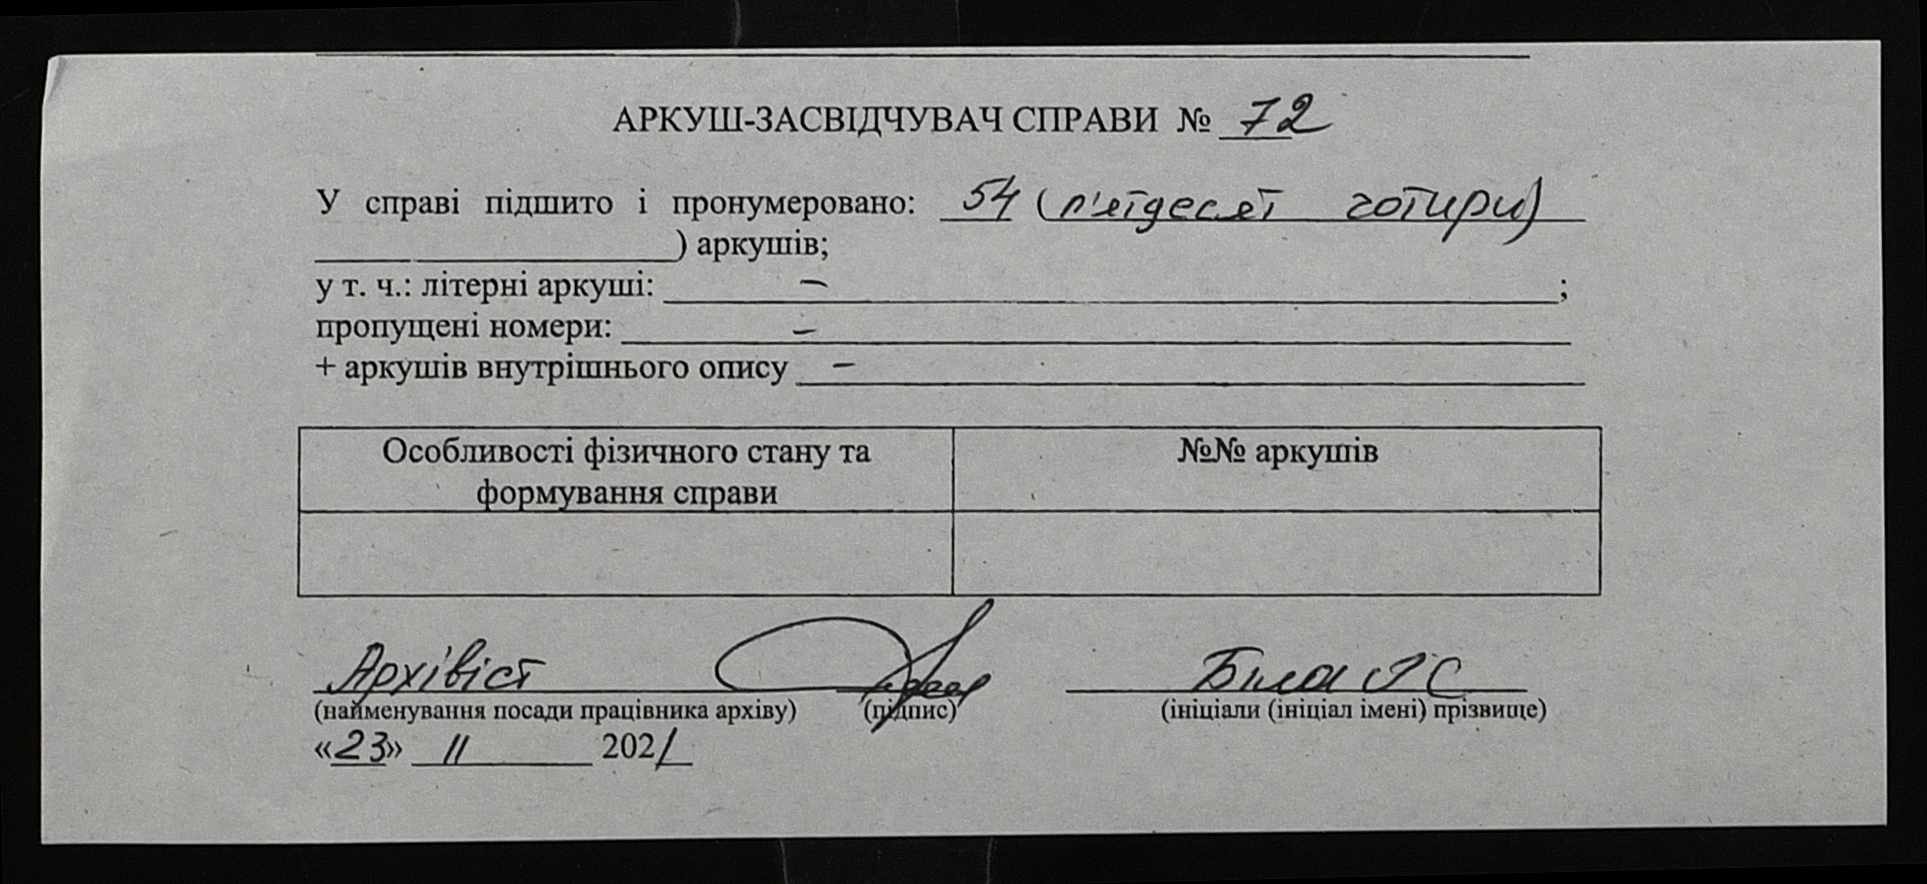 АРКУШ-ЗАСВІДЧУВАЧ СПРАВИ № 72
У справі підшито і пронумеровано: 54 (п'ятдесят чотири)
) аркушів;
у т. ч.: літерні аркуші: – ;
пропущені номери: –
+ аркушів внутрішнього опису –
Особливості фізичного стану та формування справи
№№ аркушів
Архівіст Біла С
(найменування посади працівника архіву) (підпис) (ініціали (ініціал імені) прізвище)
«23» 11 2021